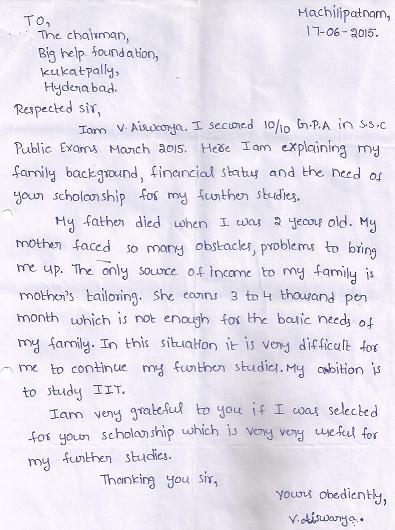 Machilipatnam,
17-06-2015.
To,
The chairman,
Big help foundation,
kukatpally,
Hyderabad.
Respected sir,
Iam V. Aiswarya. I secured 10/10 G.P.A in S.S.C
Public Exams March 2015. Here Iam explaining my
family background, financial status and the need of
your scholarship for my further studies.
My father died when I was 2 years old. My
mother faced so many obstacles, problems to bring
me up. The only source of income to my family is
mother's tailoring. She earns 3 to 4 thousand per
month which is not enough for the basic needs of
my family. In this situation it is very difficult for
me to continue my further studies. My ambition is
to study IIT.
Iam very grateful to you if I was selected
for your scholarship which is very very useful for
my further studies.
Thanking you sir,
yours obediently,
V. Aiswarya.